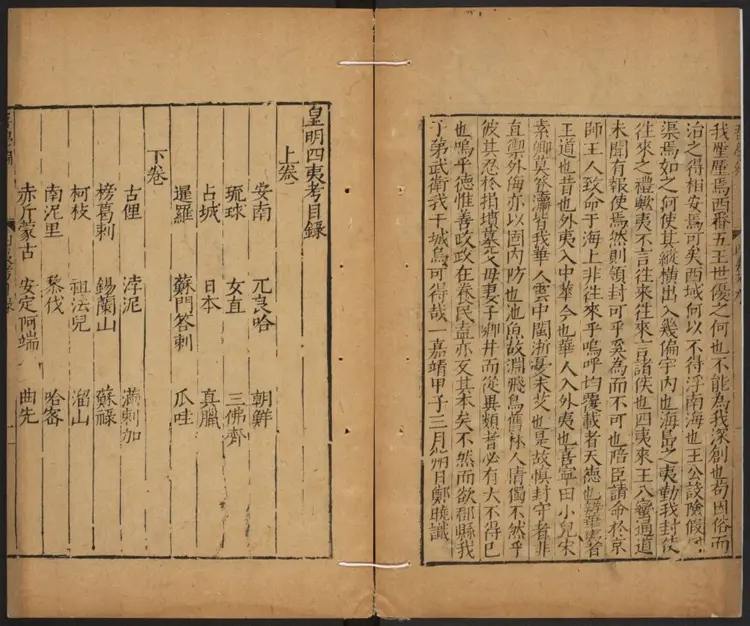 我塵塵焉西番五王世優之何也不能為我深創也苟因俗而
治之得相安焉可矣西域何以不得浮南海也王公設險假
渠焉如之何使其縱橫出入幾偏宇内也海島之夷勤我封使
往來之禮歟夷不言往来往來言諸侯也四夷來王八蠻通道
未聞有報使焉然則領封可乎奚為而不可也陪臣請命於京
師王人致命于海上非往來乎嗚呼均覆載者天德也辨華夷者
王道也昔也外夷入中華今也華人入外夷也喜寧田小兒宋
素卿莫登瀛皆我華人雲中閩浙憂未艾也是故慎封守者非
直禦外侮亦以固内防也池魚故淵飛鳥舊林人情獨不然乎
彼其忍於捐墳墓父母妻子鄉井而從異類者必有大不得已
也嗚乎德惟善政政在養民盍亦反其本矣不然而欲郡縣我
子弟武衛我干城烏可得哉嘉靖甲子三月朔日鄭曉識
皇明四夷考目錄
上卷
安南 兀良哈 朝鮮
琉球 女直 三佛齊
占城 日本 真臘
暹羅 蘇門答剌 瓜哇
下卷
古俚 浡泥 滿剌加
榜葛剌 錫蘭山 蘇祿
柯枝 祖法兒 溜山
南泥里 黎伐 哈密
赤斤蒙古 安定阿端 曲先